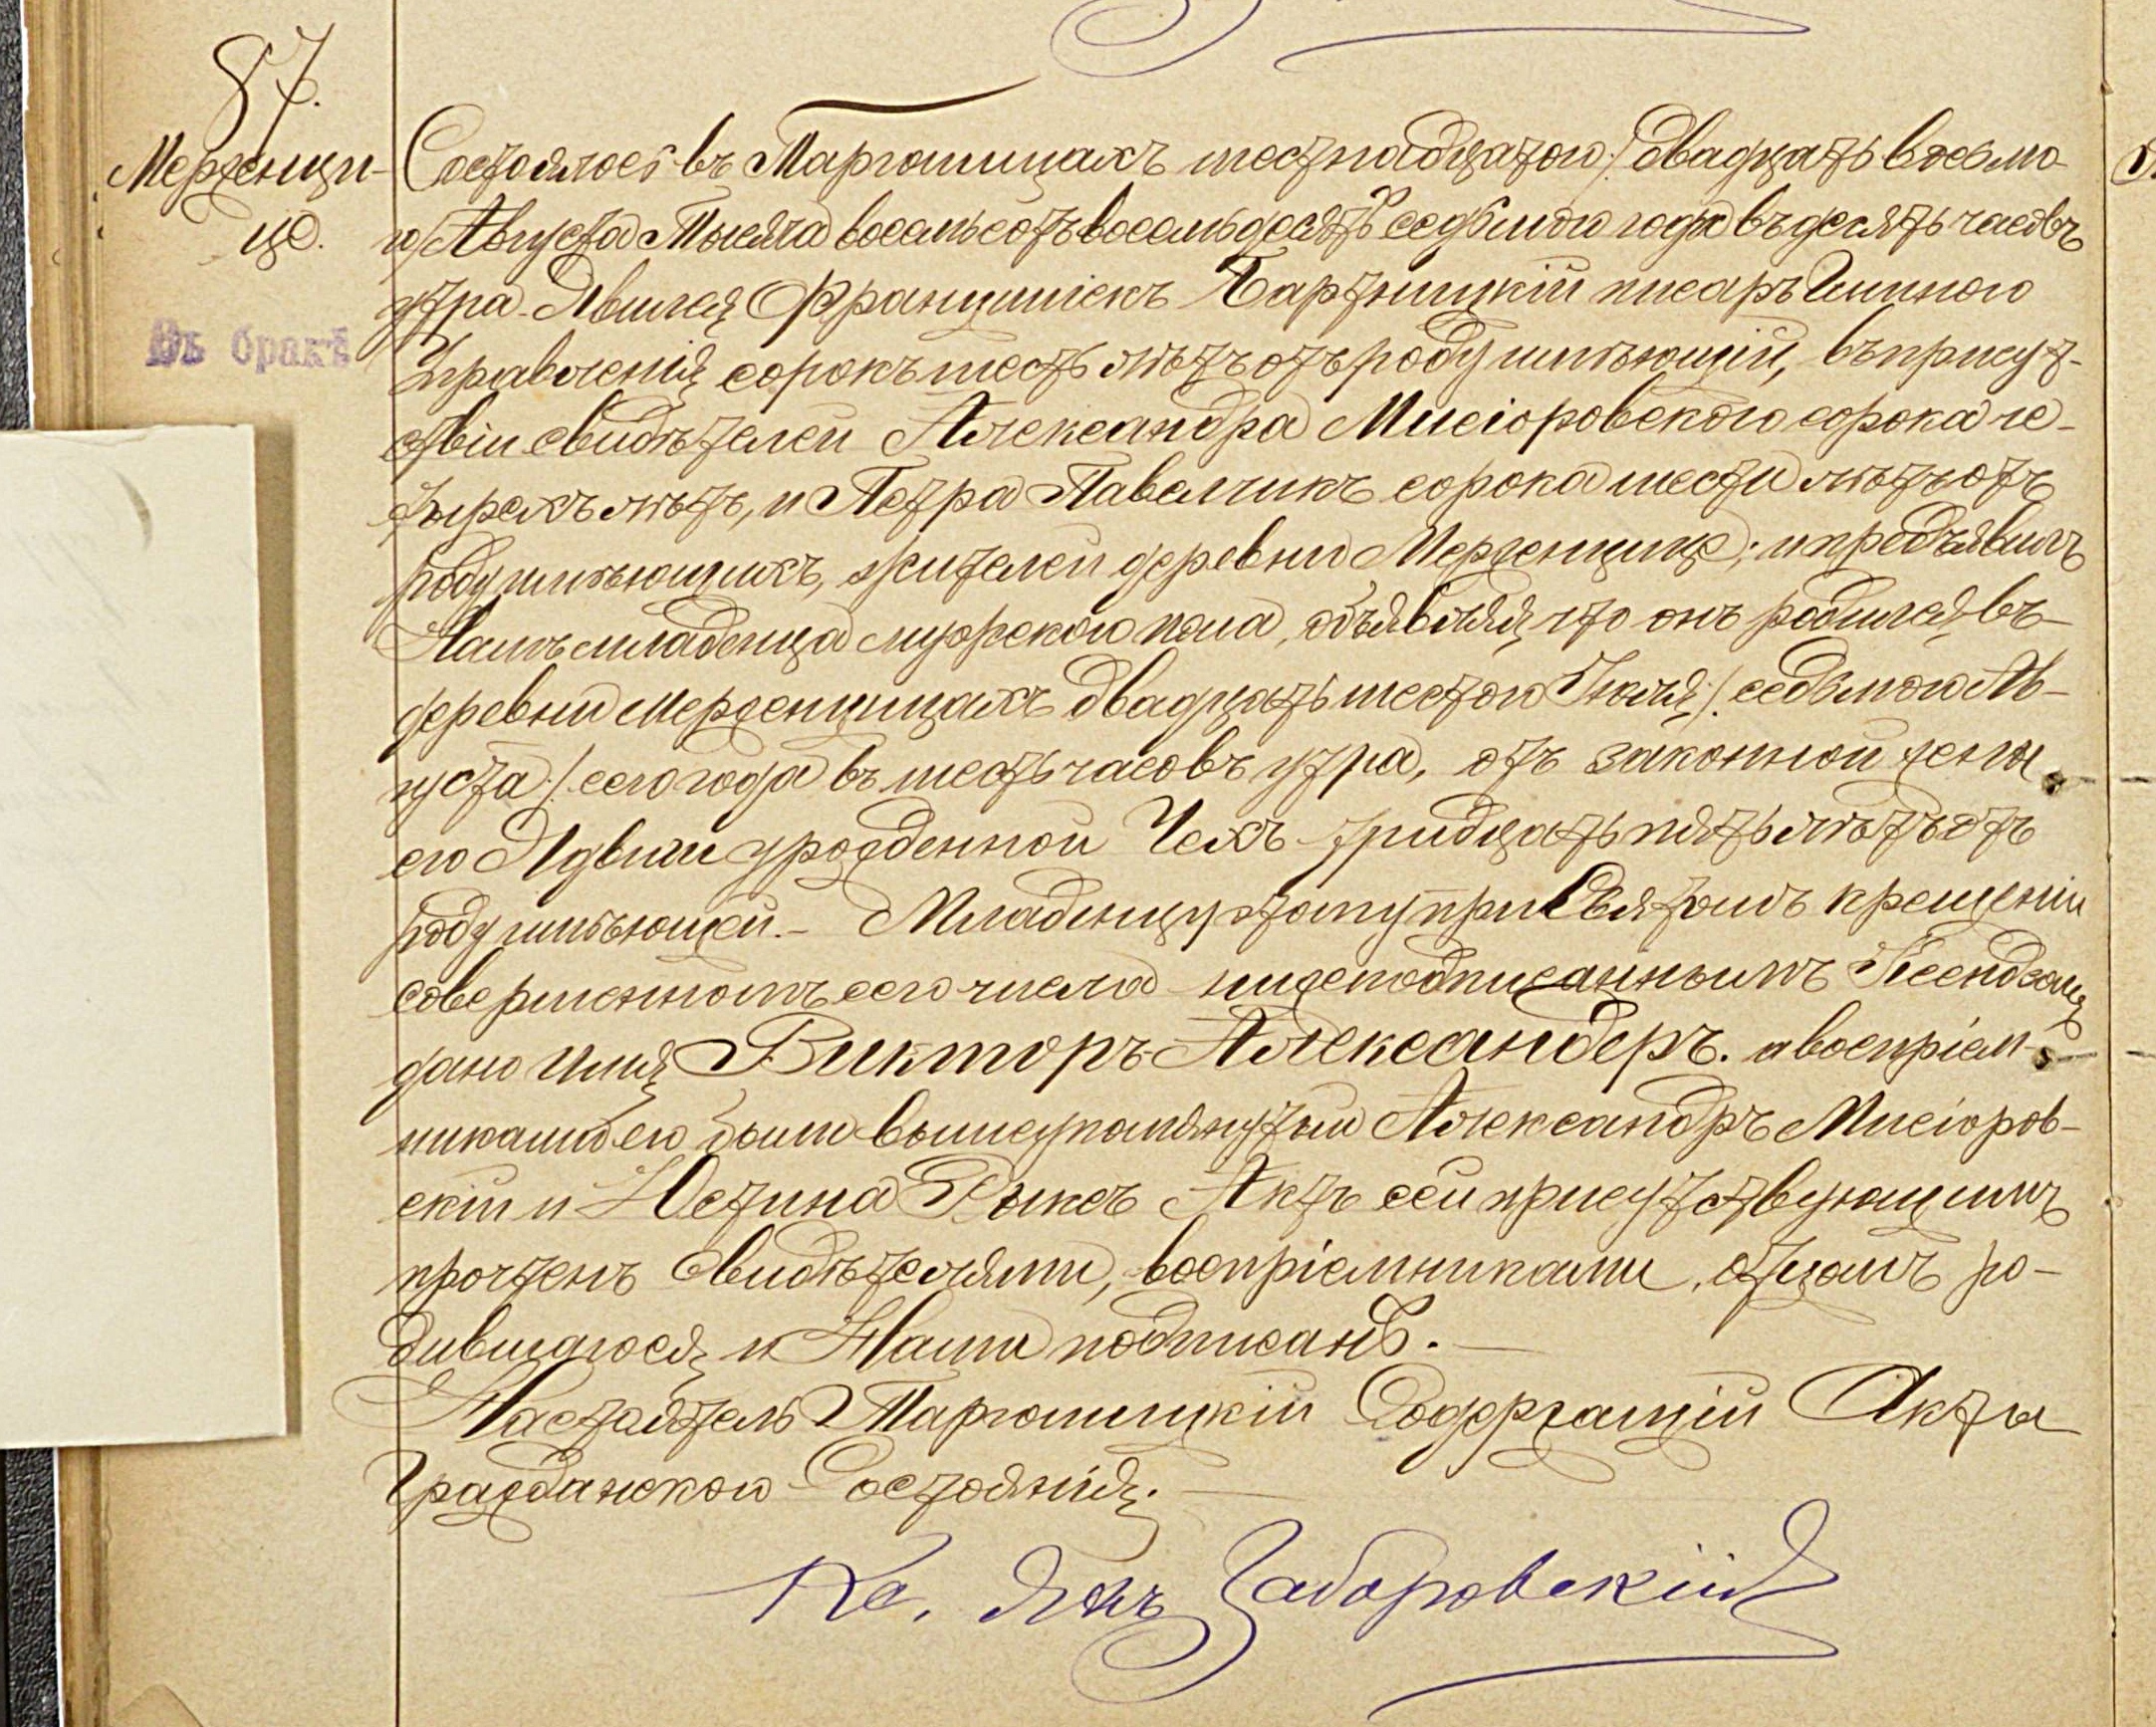 87.
Мерженци-
це.
Въ бракѣ
Состоялось въ Маргонинцахъ шестнадцатого /двадцать восьмо-
го/ Августа тысяча восемьсотъ восемьдесятъ седьмого года въ десять часовъ
утра. Явился Францишекъ Бартницкій писаръ Гминного
Управленія сорокъ шесть лѣтъ отъ роду имѣющій, въ присут-
ствіи свидѣтелей Александра Мисіоровского сорока че-
тырехъ лѣтъ, и Петра Павелчикъ сорока шести лѣтъ отъ
роду имѣющихъ, жителей деревни Мерженцице; и предъявилъ
Намъ младенца мужеского пола, объявляя, что онъ родился въ
деревни Мерженцицахъ двадцать шестого Іюля /седьмого Ав-
густа/ сего года въ шесть часовъ утра, отъ законной жены
его Ядвиги урожденной Чехъ тридцать пять лѣтъ отъ
роду имѣющей. - Младенцу этому при Святомъ крещеніи
совершенномъ сего числа нижеподписаннымъ Ксендзомъ
дано имя Викторъ-Александеръ. а воспріем-
никами его были вышеупомянутый Александръ Мисіоров-
скій и Юстина Актъ сей присутствующимъ
прочтенъ свидѣтелями, воспріемниками, отцомъ ро-
дившагося и Нами подписанъ. —
Настоятель Содержащій Акты
Гражданского Состоянія.
Кс. Янъ Заборовскій